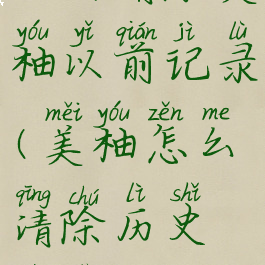 yóu yǐ qián jì lù
柚以前记录
měi yóu zěn me
(美柚怎么
qīng chú lì shǐ
清除历史